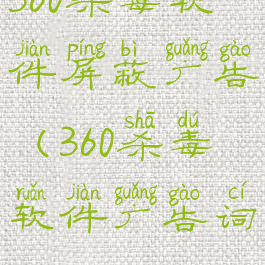 360杀毒软
jiàn píng bì guǎng gào
件屏蔽广告
shā dú
(360杀毒
ruǎn jiàn guǎng gào cí
软件广告词